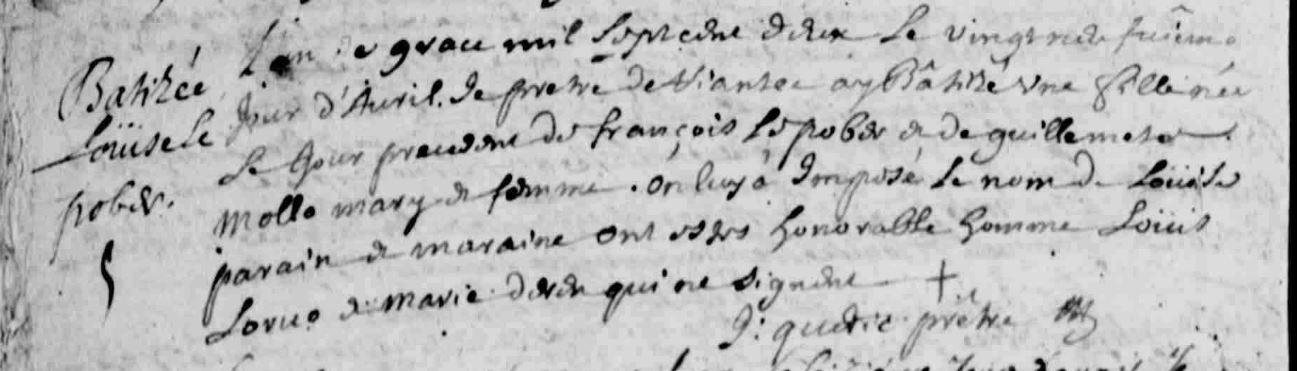 Batizée
Loüise Le
pober.
L'an de grace mil sept cent deux Le vingt neufuiem.
Jour d'Auril. Je prêtre ay Bâtizé vne fille née
Le Jour precedent de françois Le pober et de guillemete
Mollo mary et femme. on luy a Imposé Le nom de Loüise
parain et maraine ont estes honorable homme Loüis
Loruo et marie qui ne signent
J: prêtre